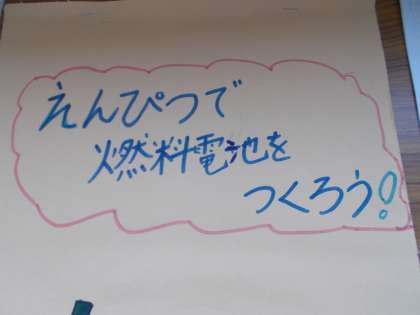 えんぴつで
燃料電池を
つくろう!